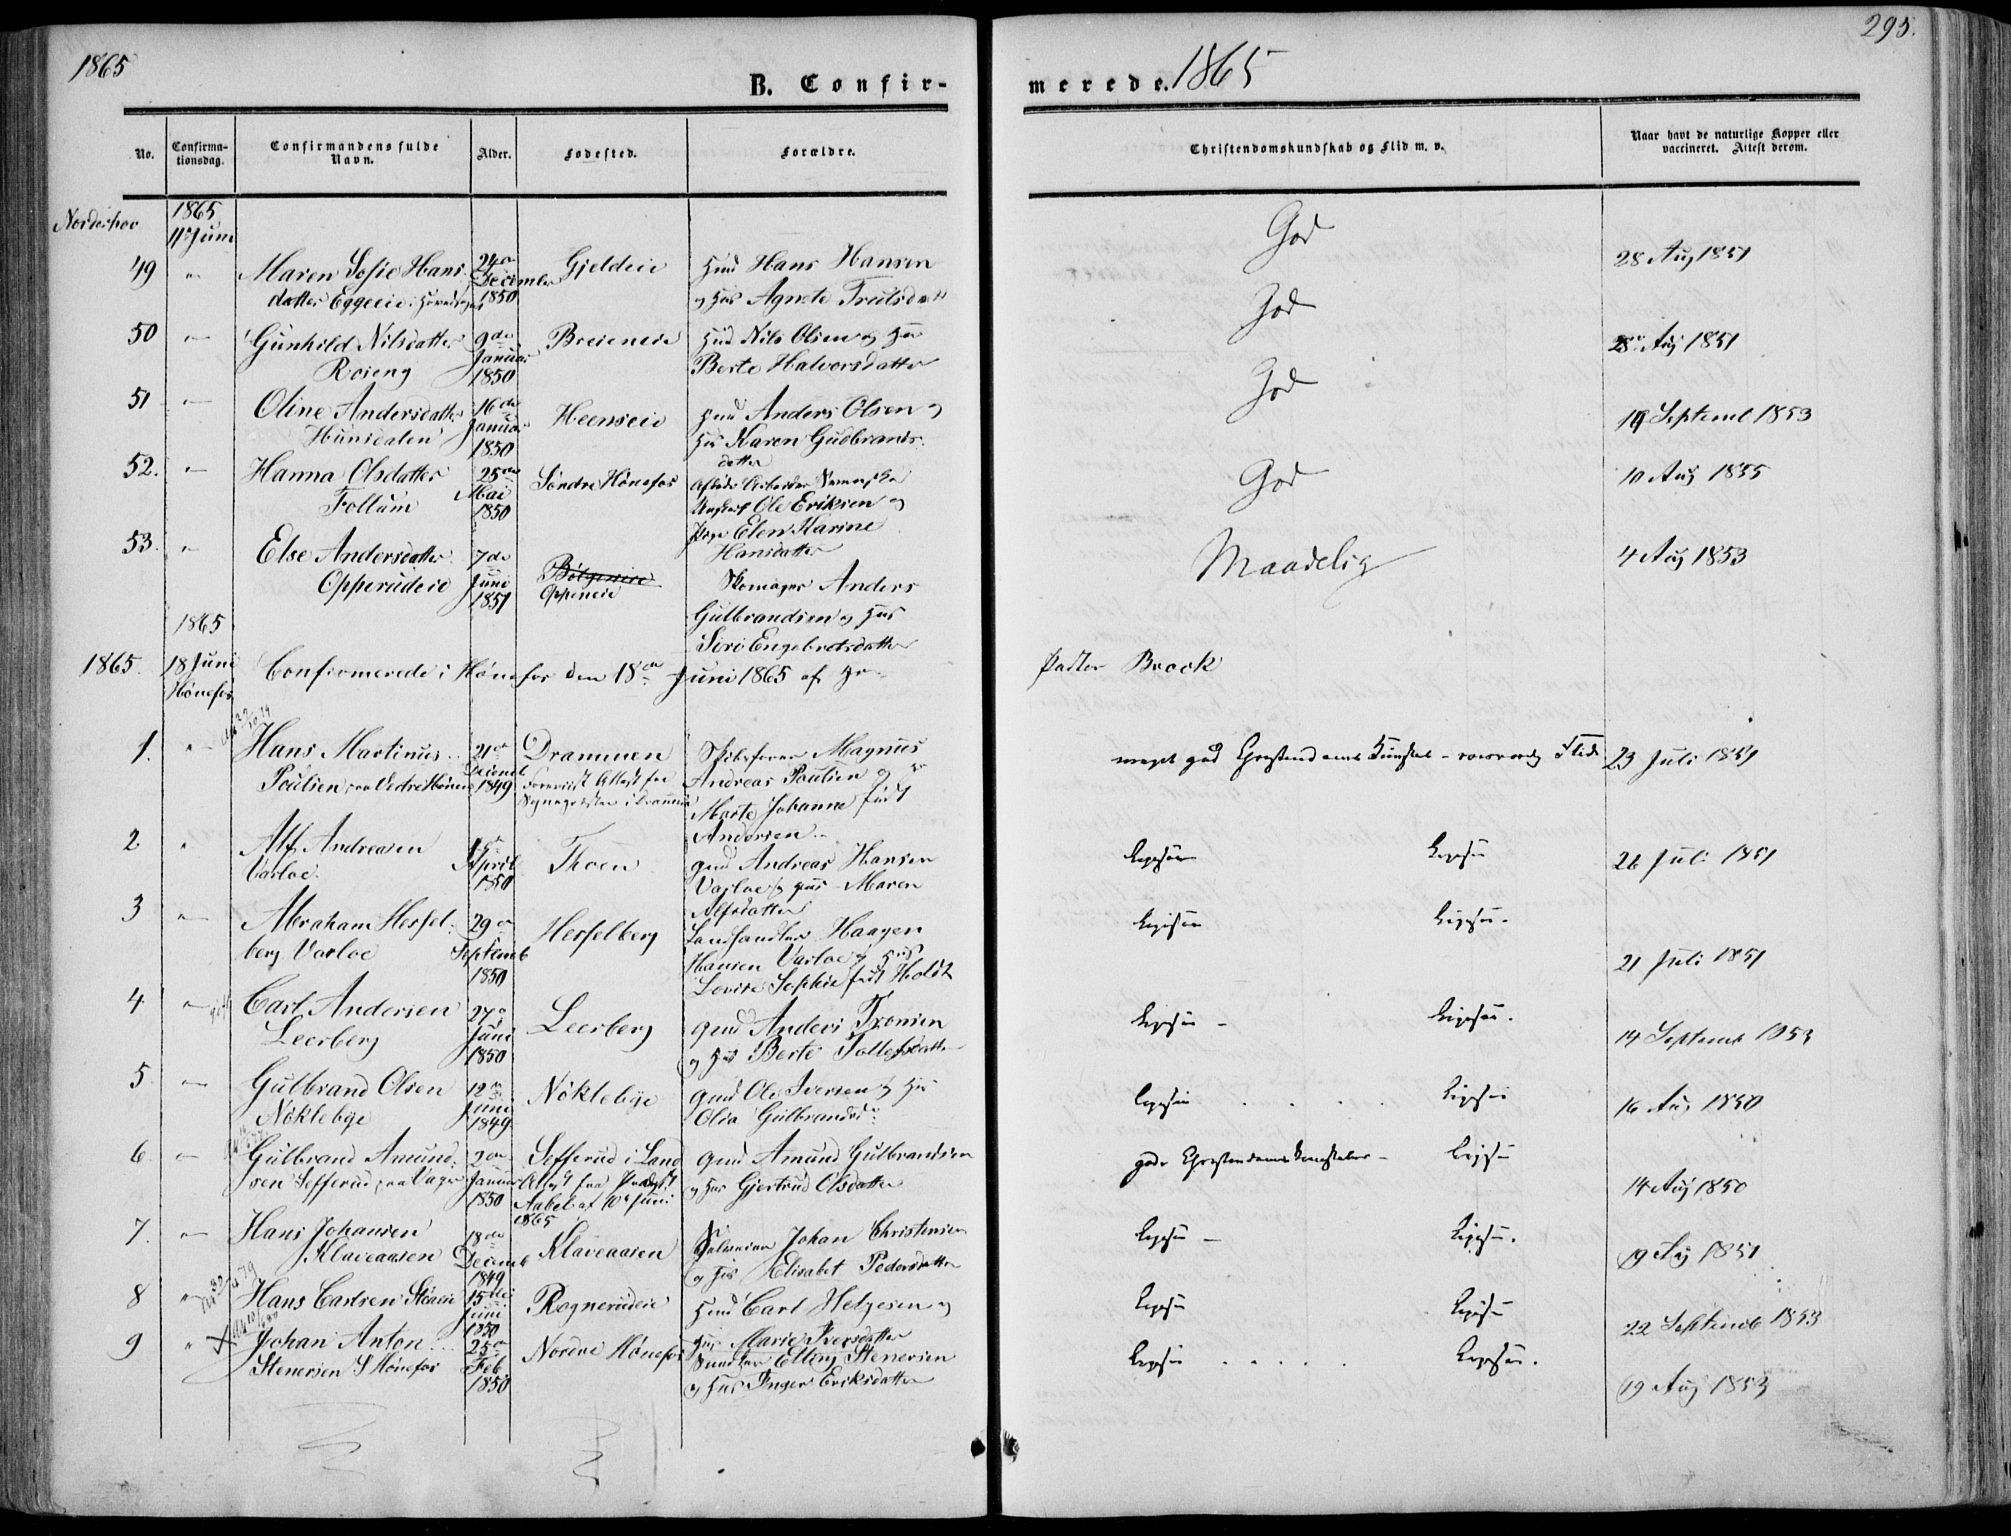 1865
B. Confir-
merede.
1865
295.
No.
Confirma-
tionsdag.
Confirmandens fulde
Navn.
Alder.
Fødested.
Forældre.
Christendomskundskab og Flid m. v.
Naar havt de naturlige Kopper eller
vaccineret. Attest derom.
Norderhov
1865
11te Juni
49 " Maren Sofie Hans-
datter Eggeeie
24de
December
1850
Gjeldeie
Hmd Hans Hansen
og Hus Agnete Trulsdatt
God
28 Aug 1851
50 " Gunhild Nilsdatter
Roieng
9de
Januar
1850
Breieneie
Hmd Nils Olsen og Hu
Berte Halvorsdatter
God
28 Aug 1851
51 " Oline Andersdatter
Hunsdalen
16de
Januar
1850
Heenseie
Hmd Anders Olsen og
Hus Karen Gudbrands-
datter
God
19 Septemb 1853
52. " Hanna Olsdatter
Follum
25de
Mai
1850
Søndre Hønefos
Ole Eriksen og
Pige Elen Karine
Hansdatter
God
10 Aug 1855
53. " Else Andersdatter
Opperudeie
7de
Juni
1851
Oppeneie
Skomager Anders
Gulbrandsen og Hus
Siri Engebretsdatter
Maadelig
4 Aug 1853
1865
1865. 18 Juni
Hønefos
Confirmerede i Hønefos den 18de Juni 1865 af Hr
Pastor Brock
1. " Hans Martinus
Poulsen paa Vestre Hønen
21de
Decemb
1849
Drammen
Foreviist Attest fra
Sognepræsten i Drammen
Skibsfører Magnus
Andreas Poulsen og
Marte Johanne født
Andersen
meget god Christendoms Kundskab - Flid
23 Juli 1851
2. " Alf Andreasen
Varloe
April
1850
Thoen
Gmd Andreas Hansen
Varloe og Hus Maren
Alfsdatter
Ligesaa
Ligesaa
26 Juli 1851
3 " Abraham Hesfel-
berg Varloe
29de
Septemb
1850
Hesfelberg
Landhandler Haagen
Hansen Varloe og Hus
Lovise Sophie født Holdt
Ligesaa
Ligesaa.
21 Juli 1851
4 " Carl Andersen
Leerberg
27de
Juni
1850
Leerberg
Gmd Anders Tronsen
og Hus Berte Tollefsdatter
Ligesaa -
Ligesaa.
14 Septemb 1853
5. " Gulbrand Olsen
Nøklebye
12te
Juni
1849
Nøklebye
Gmd Ole Iversen og Hus
Olia Gulbrandsd
Ligesaa . . . .
Ligesaa
16 Aug 1850
6. " Gulbrand Amund-
sen Sefferud paa Vager
2den
Januar
1850
Sefferud i Land
Attest fra
Aabel af 10de Juni
1865
Gmd Amund Gulbrandsen
og Hus Gjertrud Olsdatter
gode Christendoms Kundskaber -
Ligesaa
14 Aug 1850
7. " Hans Johansen
Klaveaasen
18de
Decemb
1849
Klaveaasen
Johan Christensen
og Hus Elisabet Pedersdatter
Ligesaa -
Ligesaa.
19 Aug 1851
8 " Hans Carlsen
15de
Juni
1850
Rognerudeie
Hmd Carl Helgesen og
Hus Marie Iversdatter
Ligesaa
Ligesaa
22 Septemb 1853
9 " Johan Anton
Stenersen S Hønefos
25de
Feb
1850
Nordre Hønefos
Elling Stenersen
og Hus Inger Eriksdatter
Ligesaa . . . . .
Ligesaa.
19 Aug 1853